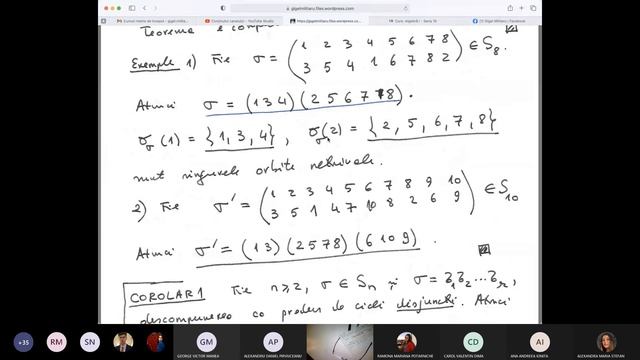 gigelmilitaru.files.wordpress.com
Teorema e
Exemple 1) Fie σ = ( 1 2 3 4 5 6 7 8
3 5 4 1 6 7 8 2 ) ∈ S₈.
Atunci σ = (1 3 4) (2 5 6 7 8).
O_σ(1) = {1, 3, 4}, O_σ(2) = {2, 5, 6, 7, 8}
sunt singurele orbite netriviale.
2) Fie σ' = ( 1 2 3 4 5 6 7 8 9 10
3 5 1 4 7 10 8 2 6 9 ) ∈ S₁₀
Atunci σ' = (1 3) (2 5 7 8) (6 10 9).
COROLAR 1 Fie n ≥ 2, σ ∈ Sₙ și σ = τ₁τ₂...τᵣ,
descompunerea ca produs de cicli disjuncți. Atunci
+35 RM SN GM AP CD AI
GEORGE VIICTOR MANEA
ALEXANDRU DANIEL PIRVACEANU
RAMONA MARIANA POTARNICHE
CAROL VALENTIN DIMA
ANA ANDREEA IONITA
ALEXANDRA MARIA STEFAN